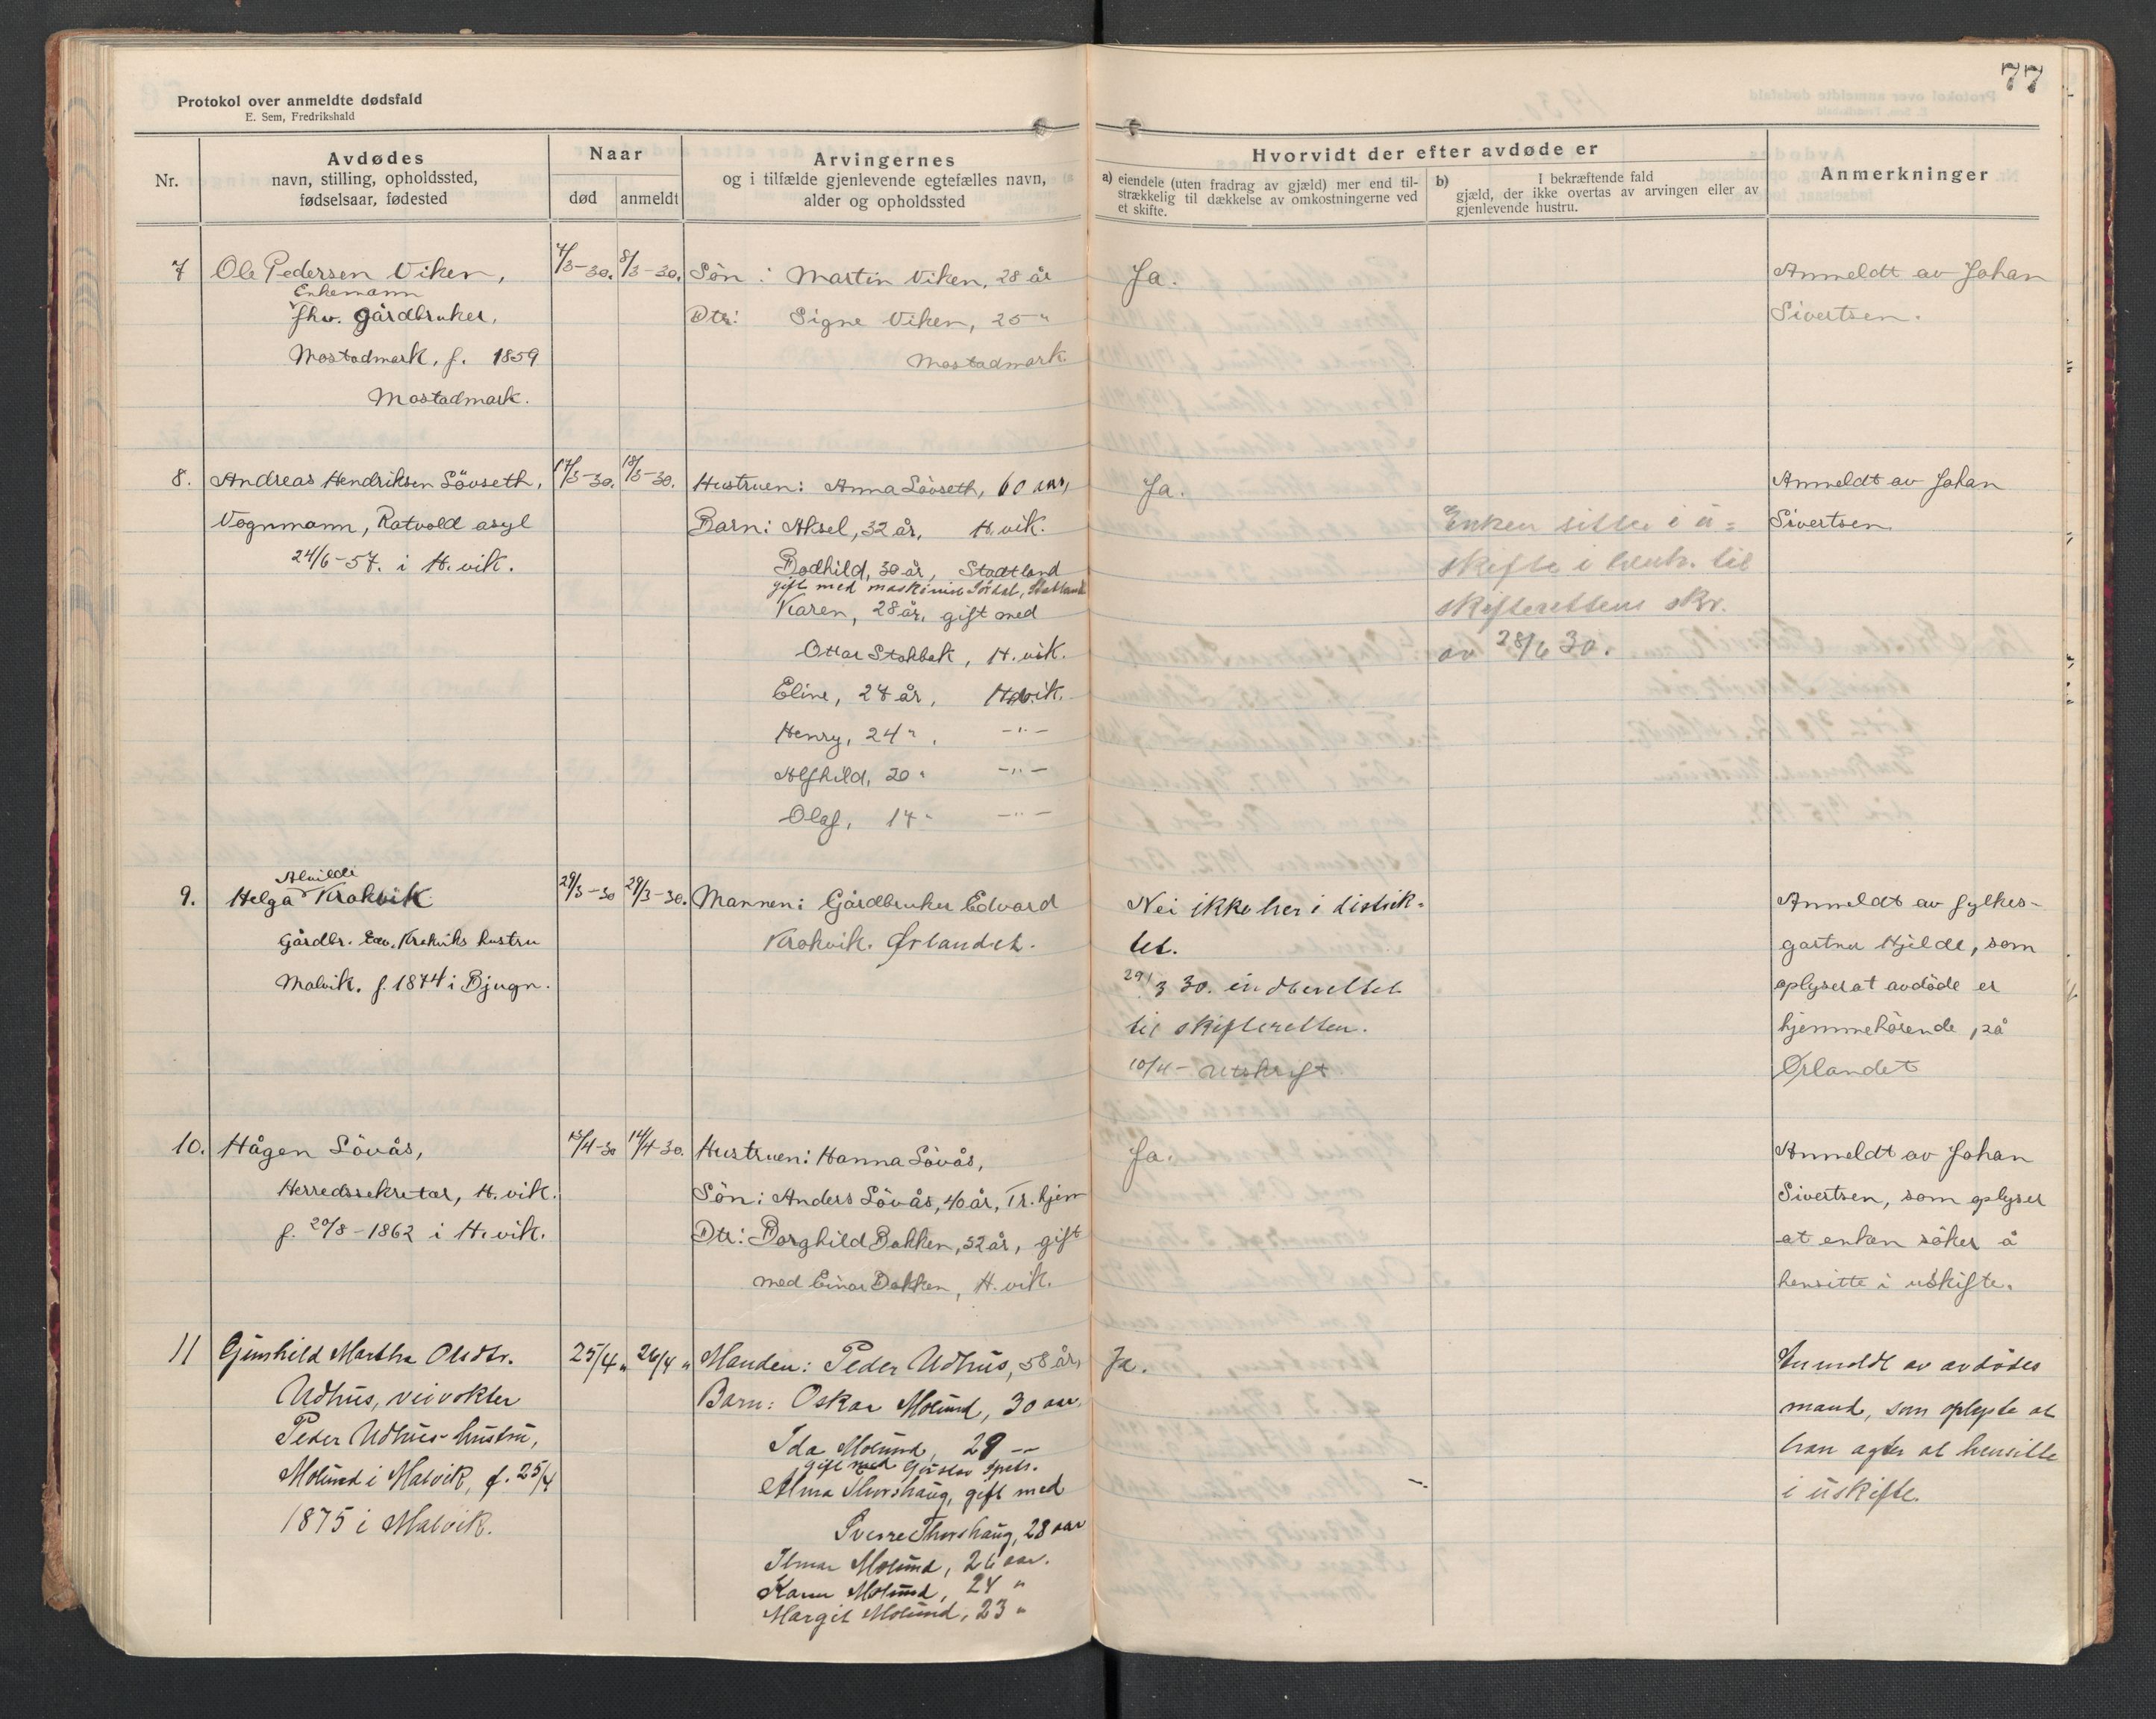 77
Protokol over anmeldte dødsfald
E. Sem, Fredrikshald
Nr.
Avdødes
navn, stilling, opholdssted,
fødselsaar, fødested
Naar
død
anmeldt
Arvingernes
og i tilfælde gjenlevende egtefælles navn,
alder og opholdssted
Hvorvidt der efter avdøde er
a) eiendele (uten fradrag av gjæld) mer end til-
strækkelig til dækkelse av omkostningerne ved
et skifte.
b) I bekræftende fald
gjæld, der ikke overtas av arvingen eller av
gjenlevende hustru.
Anmerkninger
7 Ole Pedersen Viken,
Enkemann
fhv. gårdbruker,
Mostadmark, f. 1859
Mostadmark.
7/3-30. 8/3-30.
Sön: Martin Viken, 28 år
Dtr: Signe Viken, 25 "
Mostadmark
Ja.
Anmeldt av Johan
Sivertsen.
8. Andreas Hendriksen Lövseth,
Vognmann, Rotvold asyl
24/6-57. i H.vik.
17/3-30. 18/3-30.
Hustruen: Anna Lövseth, 60 aar,
Barn: Aksel, 32 år, H.vik.
Bodhild, 30 år, Stadtland
gift med maskinist
Karen, 28 år, gift med
Ottar Stokbak, H.vik.
Eline, 27 år, H.vik.
Henry, 24 ", -"-
Alfhild, 20 " -"-
Olaf, 14 " -"-
Ja.
Enken sitter i u-
skifte i henh. til
skifterettens skr.
av 28/6 30.
Anmeldt av Johan
Sivertsen
9. Helga Krokvik
Alvilde
Gårdbr. Edv. Krokviks hustru
Malvik. f. 1874 i Bjugn.
29/3-30 29/3-30.
Mannen: Gårdbruker Edvard
Krokvik. Ørlandet.
Nei ikke her i distrik-
tet.
29/3 30. indberettet
til skifteretten.
10/4- Utskrift
Anmeldt av fylkes-
gartner Hjelde, som
oplyser at avdöde er
hjemmehörende på
Ørlandet
10. Hågen Lövås,
Herredssekretær, H.vik.
f. 20/8-1862 i H.vik.
13/4-30 14/4-30.
Hustruen: Hanna Lövås,
Sön: Anders Lövås, 40 år, Tr.hjem
Dtr: Borghild Bakken, 32 år, gift
med Einar Bakken, H.vik.
Ja.
Anmeldt av Johan
Sivertsen, som oplyser
at enken söker å
hensitte i uskifte.
11 Gunhild Martha Olsdtr.
Udhus, veivokter
Peder Udhus hustru,
Molund i Malvik, f. 25/4
1875 i Malvik.
25/4 " 26/4 "
Manden: Peder Udhus, 58 år,
Barn: Oskar Molund, 30 aar,
Ida Molund, 29 -"-
gift med Gustav
Alma Thorshaug, gift med
Sverre Thorshaug, 28 aar
Ilmar Molund, 26 aar.
Karen Molund, 24 "
Margit Molund, 23 "
Ja.
Anmeldt av avdödes
mand, som oplyste at
han agter at hensitte
i uskifte.